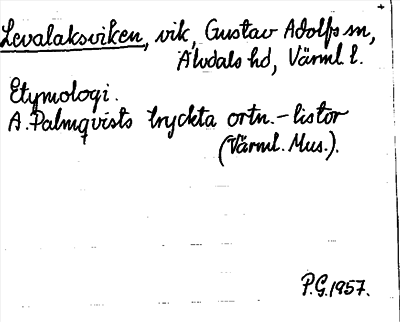 Levalaksviken, vik, Gustav Adolfs sn,
Älvdals hd, Värml. l.
Etymologi.
A. Palmqvists tryckta ortn.-listor
(Värml. Mus.).
P.G. 1957.